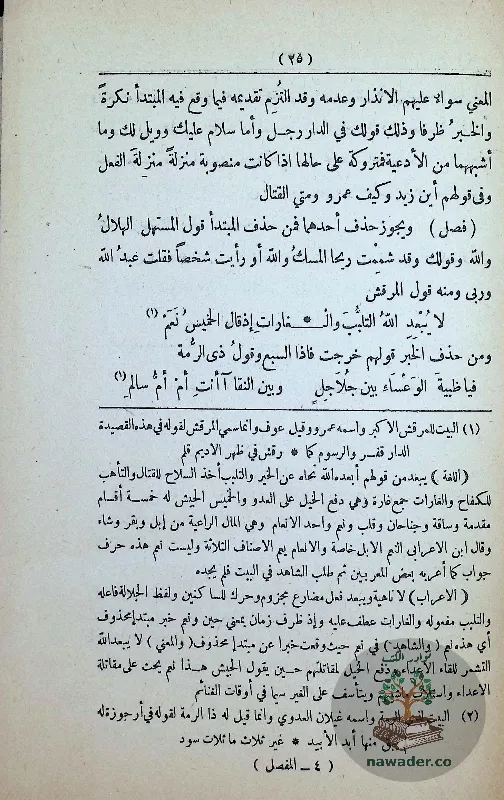 ( ٢٥ )
المعني سواء عليهم الانذار وعدمه وقد التزم تقديمه فيما وقع فيه المبتدأ نكرةً
والخبرُ ظرفا وذلك قولك في الدار رجل وأما سلام عليك وويل لك وما
أشبههما من الأدعية فمتروكة على حالها اذا كانت منصوبة منزلةً منزلةَ الفعل
وفى قولهم أين زيد وكيف عمرو ومتي القتال
( فصل ) ويجوز حذف أحدهما فمن حذف المبتدأ قول المستهل الهلالُ
والله وقولك وقد شممِت ريحا المسكُ والله أو رأيت شخصاً فقلت عبدُ الله
وربى ومنه قول المرقش
لا يُبْعِدِ اللهُ التلبُّبَ والْـ * ـغاراتِ إذ قال الخميسُ نَعَمْ (١)
ومن حذف الخبر قولهم خرجت فاذا السبع وقولُ ذى الرُّمة
فيا ظبيةَ الوَعْساء بين جُلاجلٍ وبين النقا آأنتِ أمْ أُمُّ سالمِ (٢)
(١) البيت للمرقش الاكبر واسمه عمرو وقيل عوف وانما سمي المرقش لقوله في هذه القصيدة
الدار قفر والرسوم كما * رقش في ظهر الاديم قلم
( اللغة ) يبعد من قولهم أبعده الله نحاه عن الخير والتلبب أخذ السلاح للقتال والتأهب
للكفاح والغارات جمع غارة وهي دفع الخيل على العدو والخميس الجيش له خمسة أقسام
مقدمة وساقة وجناحان وقلب ونعم واحد الانعام وهي المال الراعية من إبل وبقر وشاء
وقال ابن الاعرابي النعم الابل خاصة والانعام يعم الاصناف الثلاثة وليست نعم هذه حرف
جواب كما أعربه بعض المعربين ثم طلب الشاهد في البيت فلم يجده
( الاعراب ) لا ناهية ويبعد فعل مضارع مجزوم وحرك للساكنين ولفظ الجلالة فاعله
والتلبب مفعوله والغارات عطف عليه وإذ ظرف زمان بمعني حين ونعم خبر مبتدإ محذوف
أي هذه نعم ( والشاهد ) في نعم حيث وقعت خبرا عن مبتدإ محذوف ( والمعني ) لا يبعد الله
التشمر للقاء الأعداء ودفع الخيل لمقاتلتهم حين يقول الجيش هذا نعم يحث على مقاتلة
الاعداء ويتأسف على الفير سيما في أوقات الغنائم
(٢) البيت الرمة واسمه غيلان العدوي وانما قيل له ذا الرمة لقوله في أرجوزة له
منها أبد الأبيد * غير ثلاث ماثلات سود
( ٤ ــ المفصل )
نوادر الكتب
nawader.co